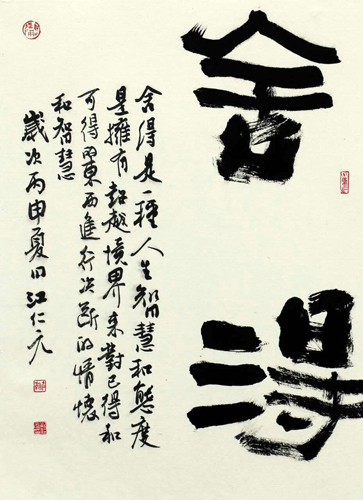 舍得
舍得是一種人生智慧和態度
是擁有超越境界來對已得和
可得的東西進行决斷的情懷
和智慧
歲次丙申夏日江仁元